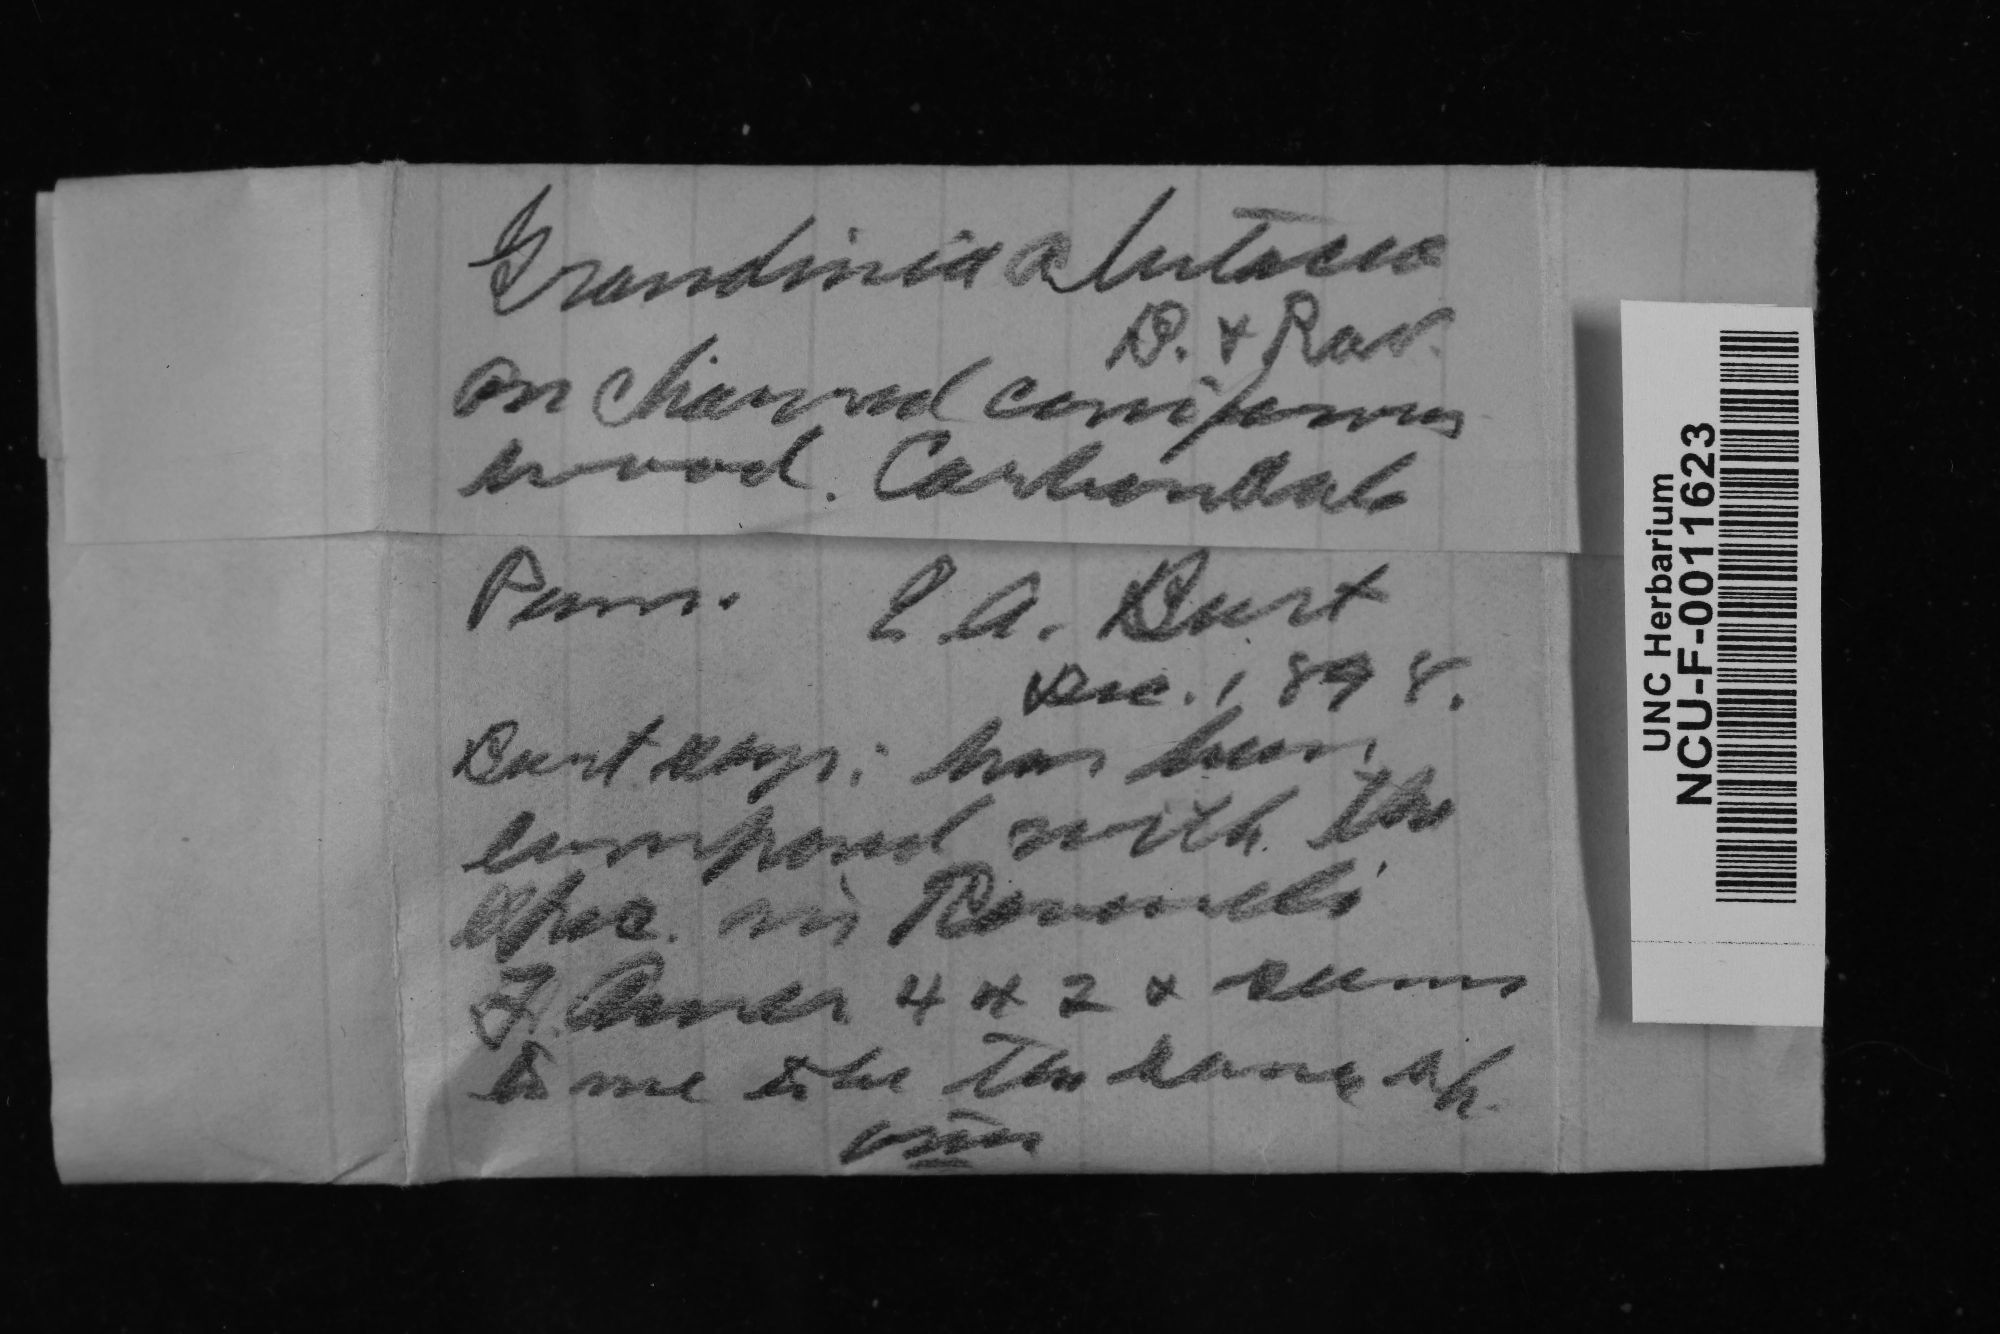 Grandinia alutacea
B. & Rav.
on charred coniferous
wood. Carbondale
Penn. E. A. Burt
Dec. 1898.
Burt says: has been
compared with the
spec. in Ravenelli
F. Amer. 4 & 2 & seems
to me to be the same sp.
UNC Herbarium
NCU-F-0011623